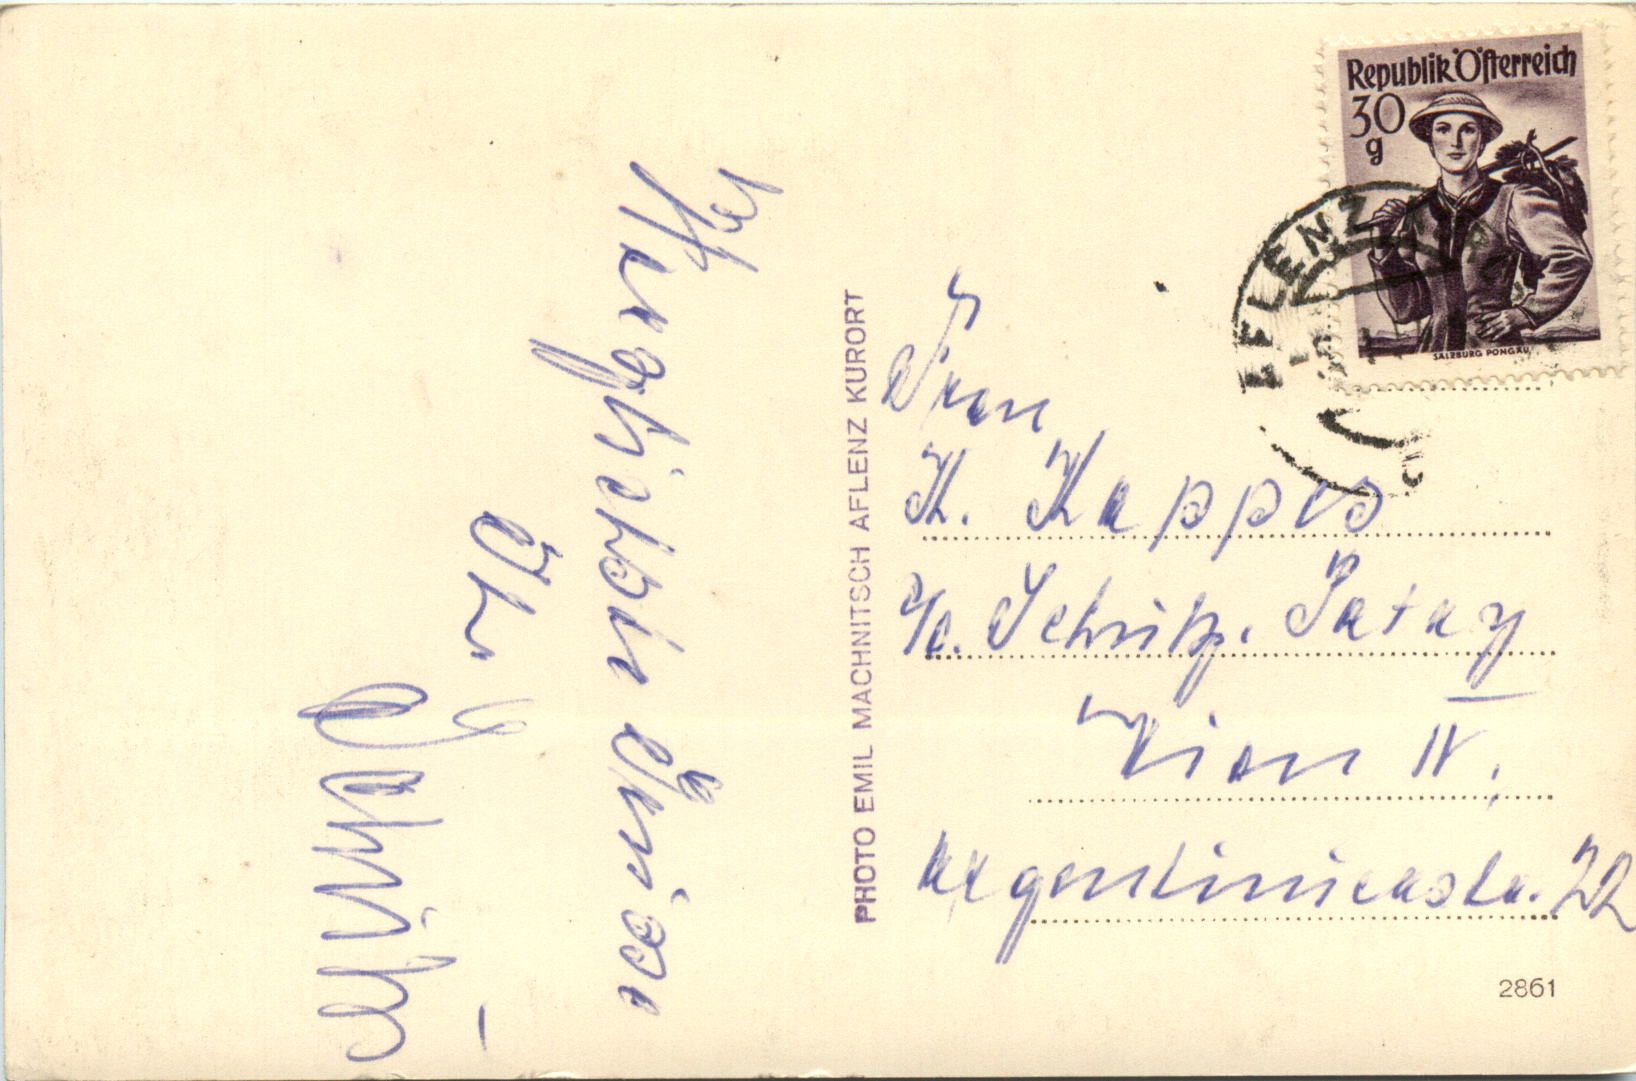 Herzlichste Grüsse
Ihr
PHOTO EMIL MACHNITSCH AFLENZ KURORT
Republik Österreich
30
g
SALZBURG PONGAU
AFLENZ
Frau
K. Kappes
c/o. Schnitz. Patay
Wien IV.
Argentinierstr. 22
2861